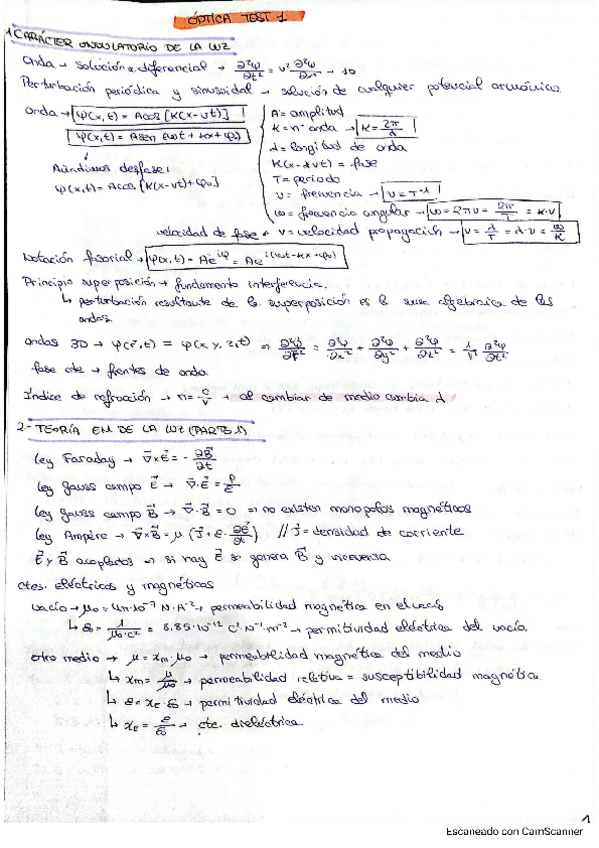 ÓPTICA TEST 1
1 CARÁCTER ONDULATORIO DE LA LUZ
Onda → solución e. diferencial → ∂²ψ/∂t² = v² ∂²ψ/∂x² → 1D
Perturbación periódica y sinusoidal → solución de cualquier potencial armónico.
onda → ψ(x,t) = A cos [K(x-vt)]
ψ(x,t) = A sen (ωt + kx + φ₀)
Añadimos desfase:
ψ(x,t) = A cos [K(x-vt)+φ₀]
A = amplitud
K = nº onda → K = 2π/λ
λ = longitud de onda
K(x-vt) = fase
T = periodo
ν = frecuencia → ν = T⁻¹
ω = frecuencia angular → ω = 2πν = 2π/T = k·v
velocidad de fase ← v = velocidad propagación → v = λ/T = λ·ν = ω/K
Notación fasorial → ψ(x,t) = Ae^{iφ} = Ae^{i(ωt-kx+φ₀)}
Principio superposición → fundamento interferencia.
↳ perturbación resultante de la superposición es la suma algebraica de las
ondas.
ondas 3D → ψ(r⃗,t) = ψ(x,y,z,t) ⇒ ∂²ψ/∂r⃗² = ∂²ψ/∂x² + ∂²ψ/∂y² + ∂²ψ/∂z² = 1/v² ∂²ψ/∂t²
fase cte → frentes de onda
Índice de refracción → n = c/v → al cambiar de medio cambia λ
2.- TEORÍA EM DE LA LUZ (PARTE 1)
ley Faraday → ∇⃗×E⃗ = - ∂B⃗/∂t
ley Gauss campo E⃗ → ∇⃗·E⃗ = ρ/ε
ley Gauss campo B⃗ → ∇⃗·B⃗ = 0 ⇒ no existen monopolos magnéticos
ley Ampère → ∇⃗×B⃗ = μ (J⃗ + ε ∂E⃗/∂t) // J⃗ = densidad de corriente
E⃗ y B⃗ acoplados → si hay E⃗ se genera B⃗ y viceversa
Ctes. eléctricas y magnéticas
vacío → μ₀ = 4π·10⁻⁷ N·A⁻² → permeabilidad magnética en el vacío
↳ ε₀ = 1/μ₀·c² = 8.85·10⁻¹² C²·N⁻¹·m⁻² → permitividad eléctrica del vacío.
otro medio → μ = χm·μ₀ → permeabilidad magnética del medio
↳ χm = μ/μ₀ → permeabilidad relativa = susceptibilidad magnética
↳ ε = χe·ε₀ → permitividad eléctrica del medio
↳ χe = ε/ε₀ → cte. dieléctrica.
1
Escaneado con CamScanner